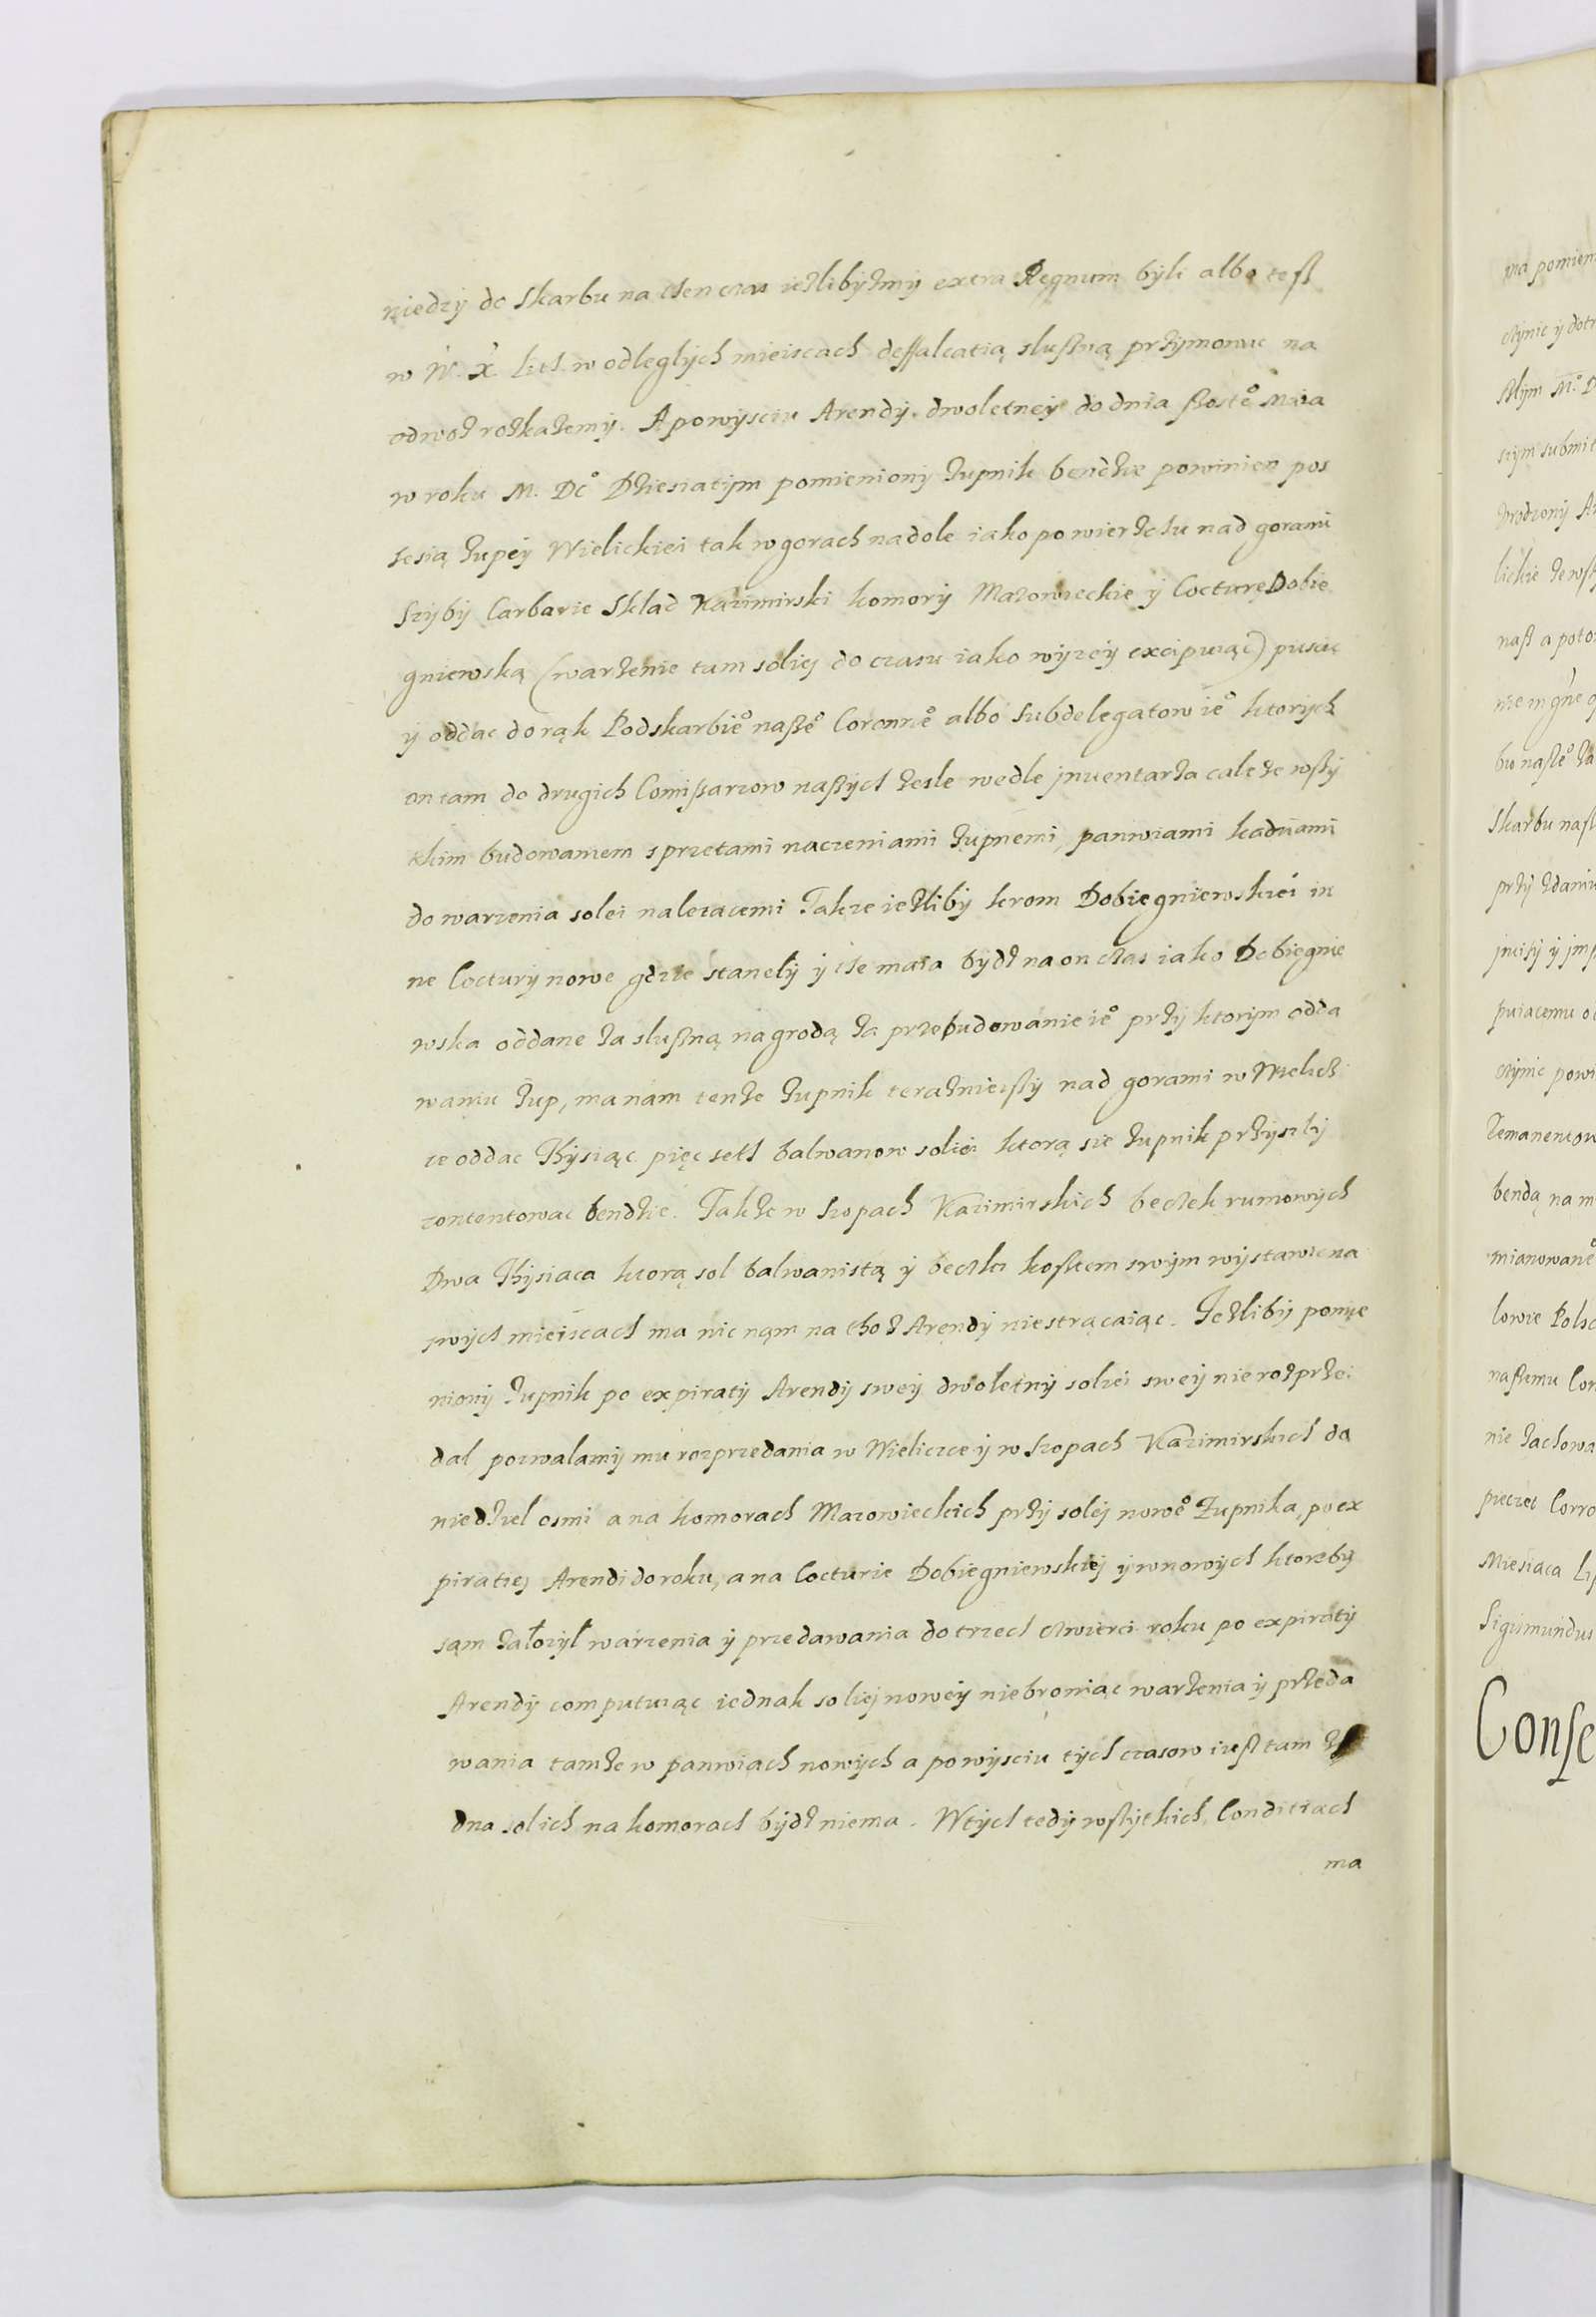 niedzy do Skarbu na tSen czas ieżlibyżmy extra Regnum byli albo teß
w W. X. Litt. w odleglych mieiscach deffalcatią slußną przymowac na
odwoż rożkażemy. A powysciu Arendy. dwoletney do dnia ßoste° Maia
w roku M. Dc° Dziesiatym pomieniony żupnik bendzie powinien pos
sesią żupey Wielickiei tak w gorach nadole iako po wierzchu nad gorami
Szyby Carbarie Sklad Kazimirski komory Mazowieckie y Cocturę Dobie
gniewską (warżenie tam soliej do czasu iako wyzey excipuiąc) puscic
y oddac do rąk Podskarbie° naße° Coronne° albo Subdelegatow ie° ktorych
on tam do drugich Comißarzow naßych żesle wedle jnuentarża cale że wßy
tkim budowaniem sprzetami naczeniami żupnemi, panwiami kadziami
do warzenia solei nalezacemi Takze ieżliby krom Dobiegniewskiei in
ne Coctury nowe gdzie stanely y tSe maia bydż na on cżas iako Dobiegnie
wska oddane ża slußną nagrodą ża przebudowanie ie° przy ktorym odda
waniu żup, ma nam tenże żupnik terażnieyßy nad gorami w Wielicż
ce oddac Thysiąc pięc seth balwanow soliei ktorą sie żupnik przyszly
contentowac bendzie. Także w szopach Kazimirskich becżek rumowych
Dwa Thysiaca ktorą sol balwanistą y becżki koßtem swym wystawic na
pwych mieiscach ma nic nąm na thoż Arendy niestrącaiąc. Ieżliby pomie
niony żupnik po expiraty Arendy swey dwoletny soliei swey nie rożprże
dal pozwalamy mu rozprzedania w Wieliczce y w szopach Kazimirskich do
niedżiel osmi a na komorach Mazowieckich przy soley nowe° Żupnika, po ex
piratiey Arendi do roku, a na Cocturie Dobiegniewskiej y w nowych ktoreby
sąm założył warzenia y przedawania do trzech cżwierci roku po expiraty
Arendy computuiąc iednak soliej nowey niebroniąc warżenia y przeda
wania tamże w panwiach nowych a powysciu tych czasow iuß tam ża
dna sol ich na komorach bydż niema. W tych tedy wßytkich Conditiach
ma
na pomieni
cżynic y dotr
ßlym M° D
szym submit
brodzony Ar
lickie że wß
naß a poto
nie in gńe
bu naße° ża
Skarbu naß
prży żdaniu
puiacemu
cżynic powi
Remanentow
bendą na m
mianowane°
lowie Polsc
naßemu Cor
nie żachowa
pieczec Corro
Miesiaca Lip
Sigismundus
Conse